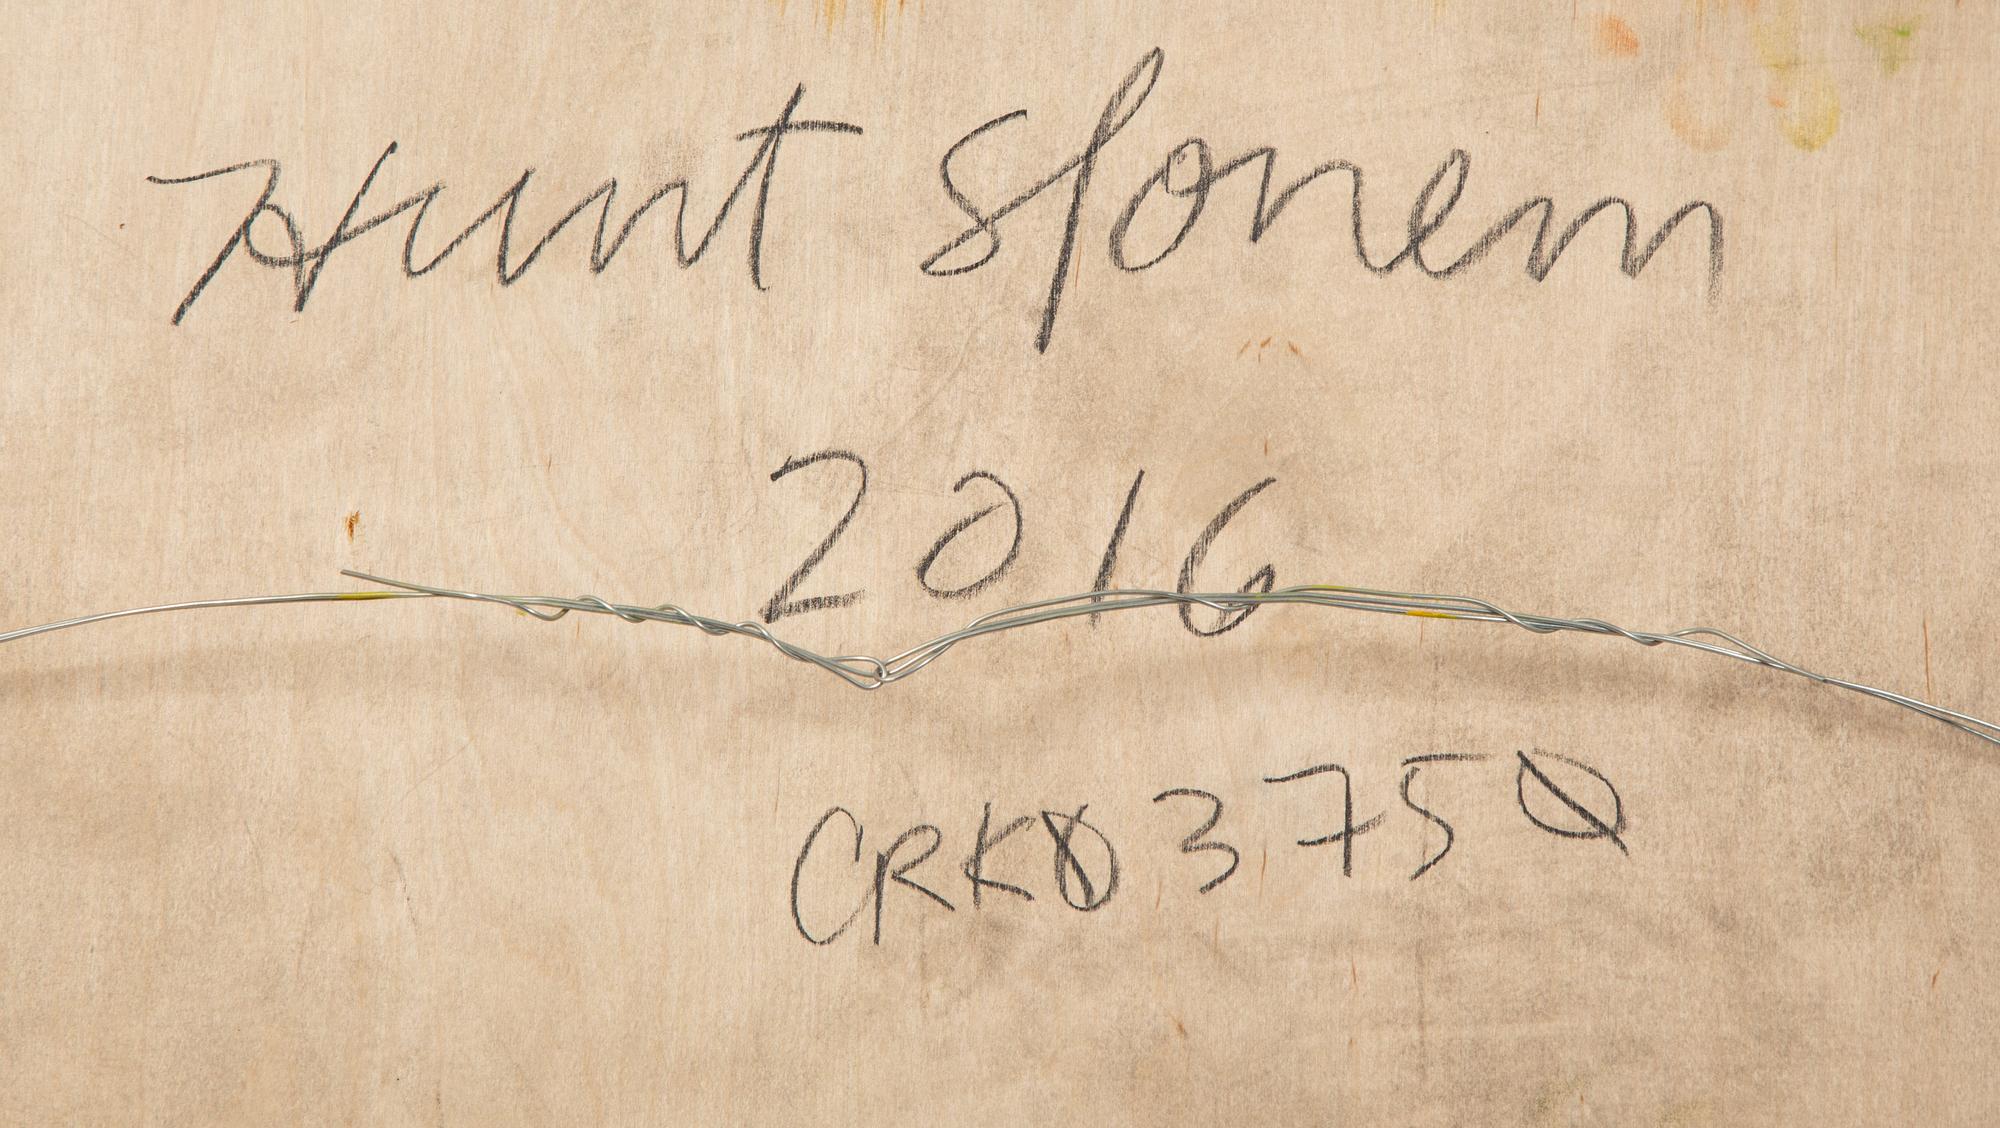 Hunt Slonem
2016
CRKØ375Ø